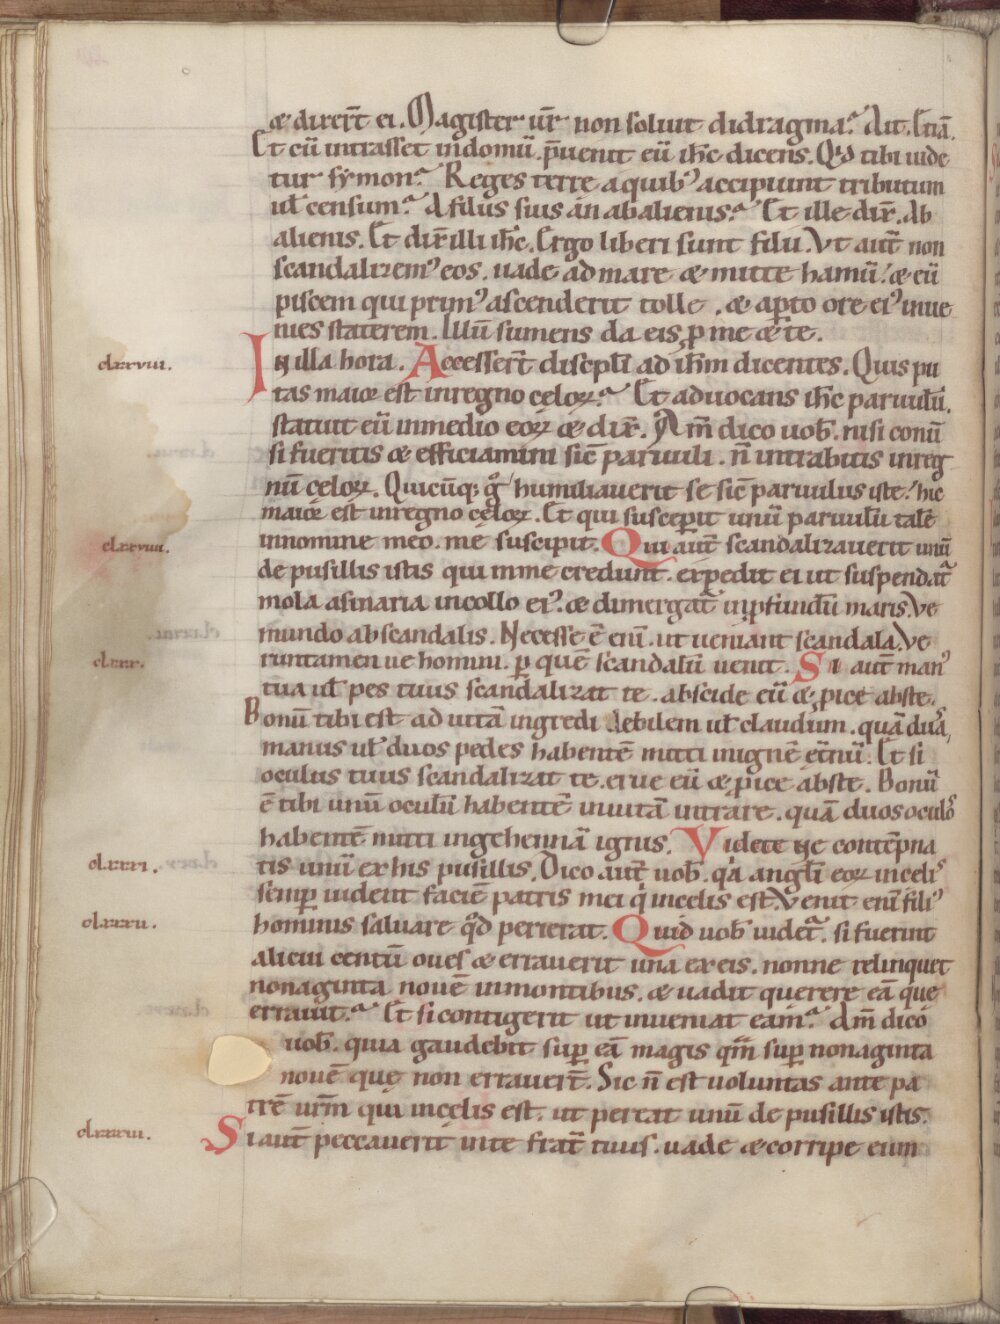 & dixer̄t ei. Magister ur̄ non soluit didragma? Ait. Etiā.
Et cū intrasset in domū. p̄uenit eū ih̄c dicens. Qd̕ tibi uide
tur symon? Reges terre a quib᾽ accipiunt tributum
ul̄ censum? A filiis suis an ab alienis? Et ille dix̄. Ab
alienis. Et dix̄ illi ih̄c. Ergo liberi sunt filii. Vt aut̄ non
scandalizem᾽ eos. uade ad mare & mitte hamū. & eū
piscem qui prim᾽ ascenderit tolle. & ap̱to ore ei᾽ inue
nies staterem. Illū sumens da eis p̱ me & te.
clxxviii.
In illa hora. Accesser̄t discipl̄i ad ih̄m dicentes. Quis pu
tas maior est in regno celoꝝ? Et aduocans ih̄c paruulū.
statuit eū in medio eoꝝ & dix̄. Am̄ dico uob̄. nisi conū
si fueritis & efficiamini sic̄ paruuli. n̄ intrabitis in reg
nū celoꝝ. Quicūq; gͦ humiliauerit se sic̄ paruulus iste. hic
maior est in regno celoꝝ. Et qui suscep̱it unū paruulū talē
in nomine meo. me suscipit. Qui aut̄ scandalizauerit unū
clxxviiii.
de pusillis istis qui in me credunt. expedit ei ut suspendat᷒
mola asinaria in collo ei᾽. & dimergat᷒ in p̱fundū maris. Ve
mundo ab scandalis. Necesse ē eni̅. ut ueniant scandala. Ve
runtamen ue homini. p̱ quē scandalū uenit. Si aut̄ man᾽
clxxx.
tua ul̄ pes tuus scandalizat te. abscide eū & ꝓice abs te.
Bonū tibi est ad uitā ingredi debilem ul̄ claudum. quā duas
manus ul̄ duos pedes habentē mitti in ignē et̄nū. Et si
oculus tuus scandalizat te. erue eū & ꝓice abs te. Bonū
ē tibi unū oculū habentē in uitā intrare. quā duos oculos
habentē mitti in gehennā ignis. Videte ne contēpna
clxxxi.
tis unū ex his pusillis. Dico aut̄ uob̄. qa angl̄i eoꝝ in celis
semp̱ uident faciē patris mei qi in celis est. Venit eni̅ fili᾽
clxxxii.
hominis saluare qd̄ perierat. Quid uob̄ uidet᷒. si fuerint
alicui centū oues & errauerit una ex eis. nonne relinquet
nonaginta nouē in montibus. & uadit querere eā que
errauit? Et si contigerit ut inueniat eam? Am̄ dico
uob̄. quia gaudebit sup̱ eā magis qm̄ sup̱ nonaginta
nouē que non errauer̄t. Sic n̄ est uoluntas ante pa
trē urm̄ qui in celis est. ut pereat unū de pusillis istis.
clxxxiii.
Si aut̄ peccauerit in te frat̄ tuus. uade & corripe eum